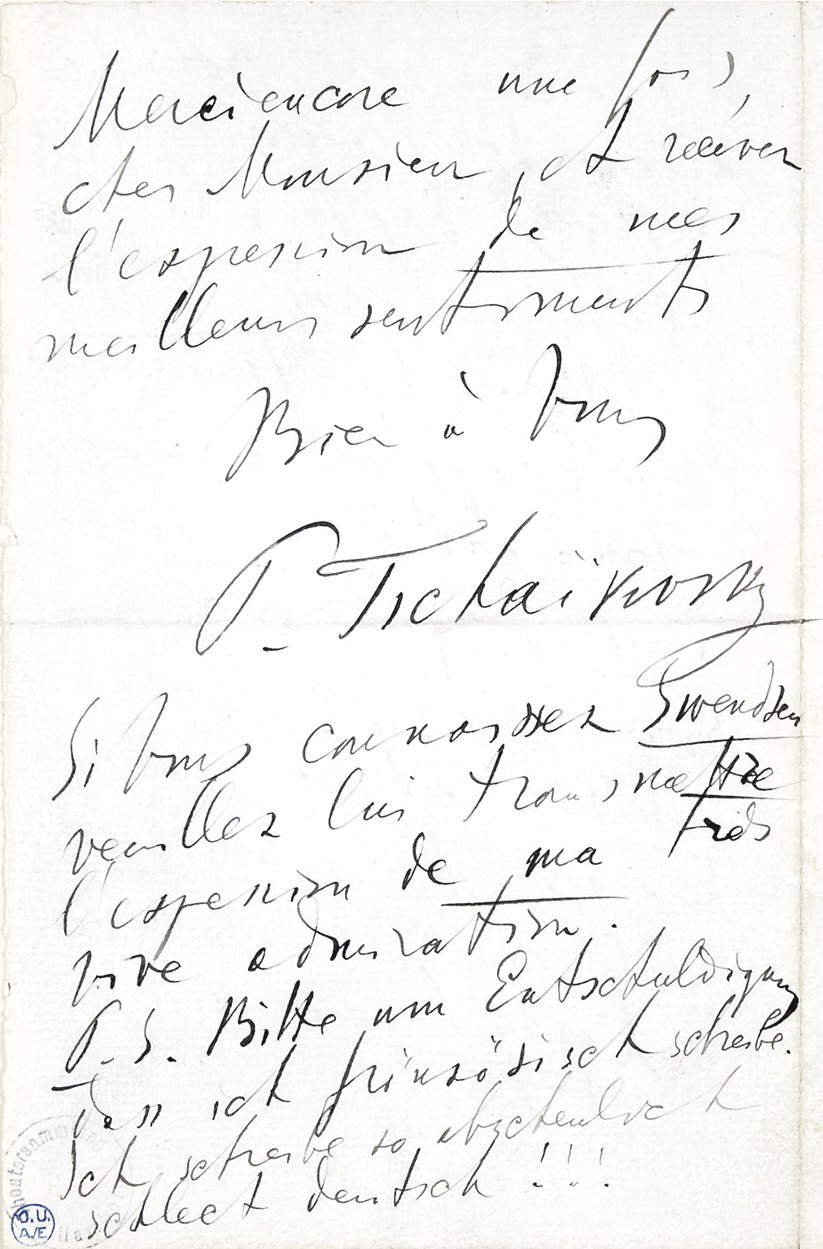 Merci encore une fois,
cher Monsieur, et recevez
l'expression de mes
meilleurs sentiments
Bien à Vous
P. Tschaïkovsky
Si Vous connaissez Swendsen
veuillez lui transmettre
l'expression de ma très
vive admiration.
P. S. Bitte um Entschuldigung
dass ich französisch schreibe.
Ich schreibe so abscheulich
schlect deutsch !!!
O.U.
A/E.